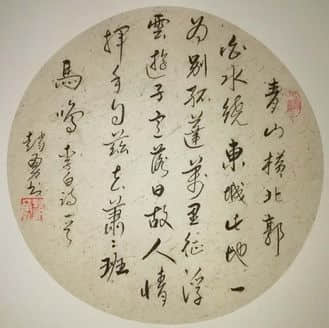 青山橫北郭
白水繞東城此地一
為別孤蓬萬里征浮
雲遊子意落日故人情
揮手自茲去蕭〻班
馬鳴 李白詩一首